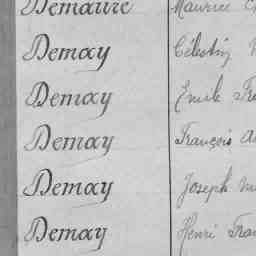 Demaure Maurice
Demay Célestin
Demay Emile
Demay François
Demay Joseph
Demay Henri